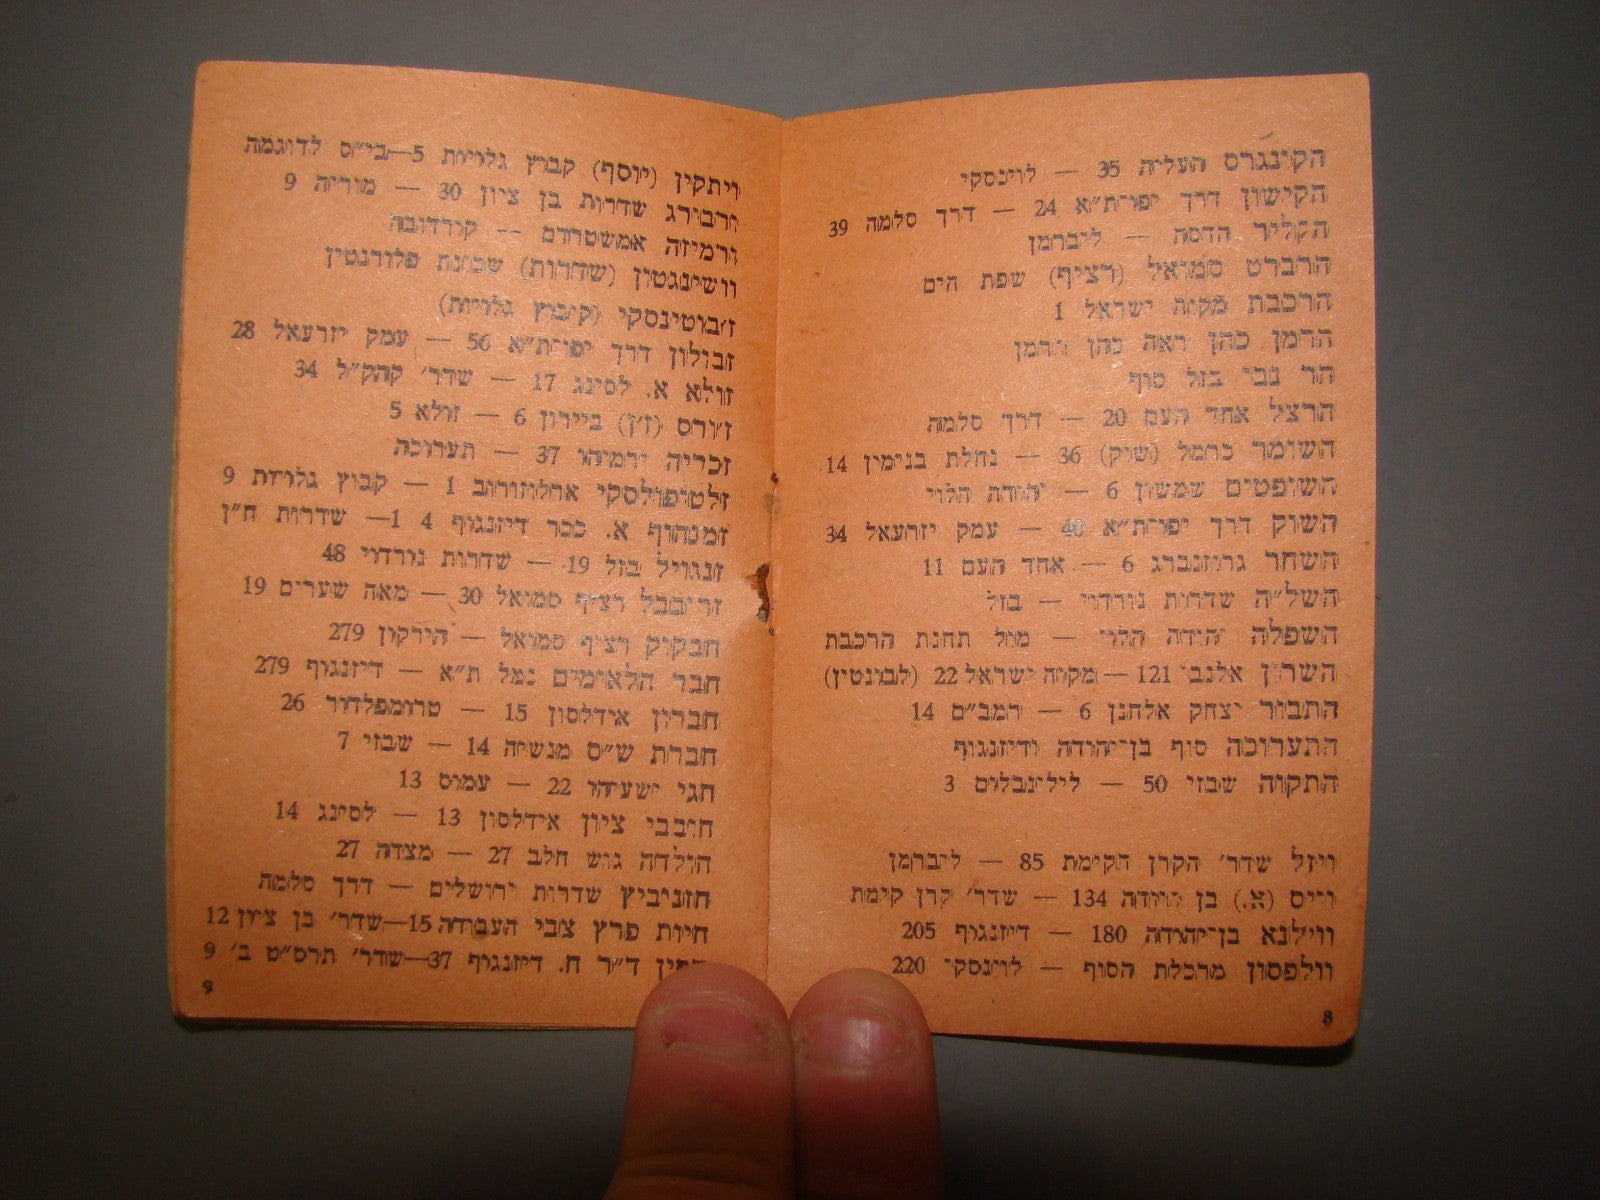 הקונגרס העליה 35 — לוינסקי
הקישון דרך יפו־ת״א 24 — דרך סלמה 39
הקליר הדסה — ליברמן
הרברט סמואל (רציף) שפת הים
הרכבת מקוה ישראל 1
הרמן כהן ראה כהן הרמן
הר נבו בזל סוף
הרצל אחד העם 20 — דרך סלמה
השומר כרמל (שוק) 36 — נחלת בנימין 14
השופטים שמשון 6 — יהודה הלוי
השוק דרך יפו־ת״א 40 — עמק יזרעאל 34
השחר גרוזנברג 6 — אחד העם 11
השל״ה שדרות נורדוי — בזל
השפלה יהודה הלוי — מול תחנת הרכבת
השרון אלנבי 121 — מקוה ישראל 22 (לבונטין)
התבור יצחק אלחנן 6 — רמב״ם 14
התערוכה סוף בן־יהודה ודיזנגוף
התקוה שבזי 50 — לילינבלום 3
ויזל שדר׳ הקרן הקימת 85 — ליברמן
וייס (א.) בן יהודה 134 — שדר׳ קרן קימת
ווילנא בן־יהודה 180 — דיזנגוף 205
וולפסון מרכלת הסוף — לוינסקי 220
8
ויתקין (יוסף) קבוץ גלויות 5—בי״ס לדוגמה
ורבורג שדרות בן ציון 30 — מוריה 9
ורמיזה אמשטרדם — קורדובה
וושינגטון (שדרות) שכונת פלורנטין
ז׳בוטינסקי (קיבוץ גלויות)
זבולון דרך יפו־ת״א 56 — עמק יזרעאל 28
זולא א. לסינג 17 — שדר׳ קהק״ל 34
ז׳ורס (ז׳ן) ביירון 6 — זולא 5
זכריה ירמיהו 37 — תערוכה
זלטופולסקי ארלוזורוב 1 — קבוץ גלויות 9
זמנהוף א. ככר דיזנגוף 4 1— שדרות ח״ן
זנגויל בזל 19 — שדרות נורדוי 48
זרובבל רציף סמואל 30 — מאה שערים 19
חבקוק רציף סמואל — הירקון 279
חבר הלאומים נמל ת״א — דיזנגוף 279
חברון אידלסון 15 — טרומפלדור 26
חברת ש״ס מנשיה 14 — שבזי 7
חגי ישעיהו 22 — עמוס 13
חובבי ציון אידלסון 13 — לסינג 14
חולדה גוש חלב 27 — מצדה 27
חזנוביץ שדרות ירושלים — דרך סלמה
חיות פרץ צבי העבודה 15—שדר׳ בן ציון 12
ד״ר ח. דיזנגוף 37—שדר׳ תרס״ט ב׳ 9
9